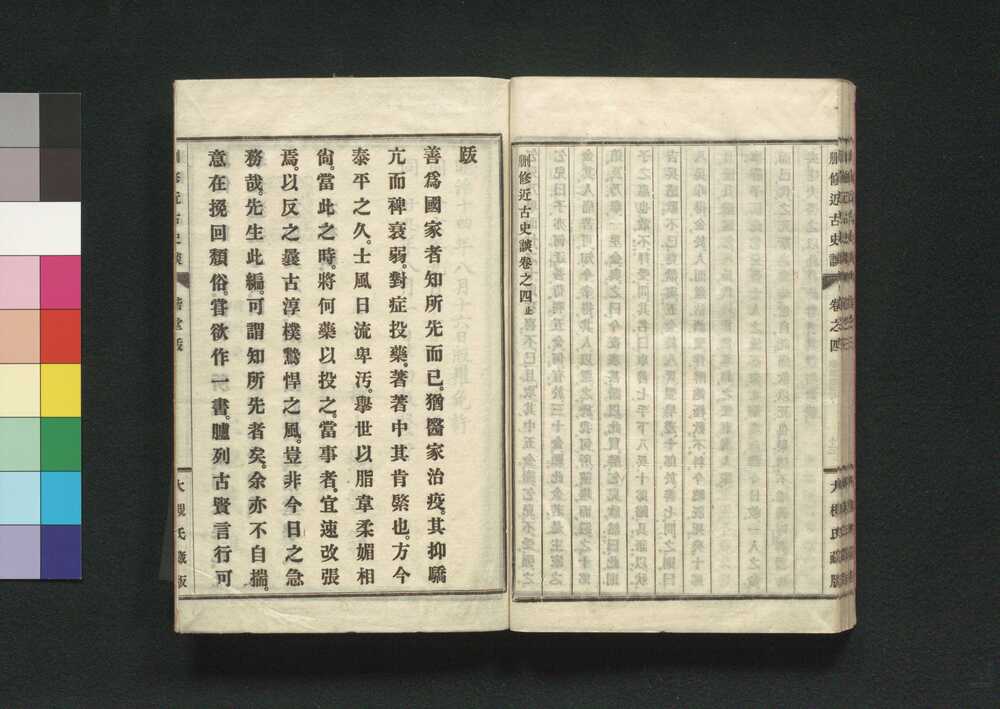 刪修近古史談
卷之四
大槻氏藏版
刪修近古史談卷之四止
跋
善爲國家者知所先而已。猶醫家治疫。其抑驕
亢而裨衰弱。對症投藥。著著中其肯綮也。方今
泰平之久。士風日流卑汚。擧世以脂韋柔媚相
尙。當此之時。將何藥以投之。當事者。宜速改張
焉。以反之曩古淳樸驁悍之風。豈非今日之急
務哉。先生此編。可謂知所先者矣。余亦不自揣。
意在挽回頽俗。嘗欲作一書。臚列古賢言行可
大槻氏藏版